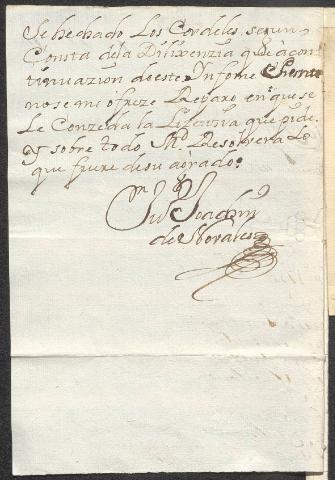 Se hechado Los Cordeles, segun
Consta de la Dilixenzia que à con
tinuazion de este Informe
no se me ofreze Reparo en que se
Le Conzeda la Lizenzia que pide
y sobre todo M.d Resolverá Lo
que fuere de su agrado.
Joachin
de Morales